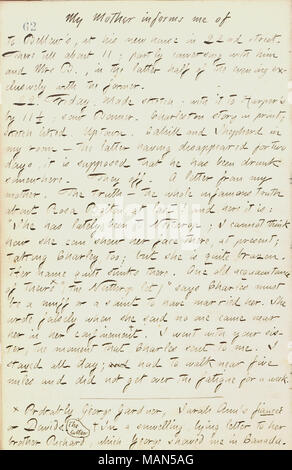 My Mother informs me of
62
to Bellew's, at his new house in 22nd street.
There till about 11; partly conversing with him
and Mrs B., in the latter half of the evening ex-
clusively with the former.
12. Friday. Made sketch; with it to Harper's
by 11½; saw Bonner. Charleston story in print;
sketch talked. Uptown. Cahill and Shepherd in
my room — the latter having disappeared for two
days, it is supposed that he has been drunk
somewhere. They off. A letter from my
mother. The truth — the whole infamous truth
about Rosa at last, and here it is:
"She has lately been I cannot think
how she can show her face there, at present;
taking Charley too; but she is quite brazen.
Her name quite stinks there. One old acquaintance
of theirs (the lot) says Charles must
be a muff or a saint to have married her. She
wrote falsely when she said no one came near
her in her confinement. I went with your sis-
ter, the moment that Charles sent to me. I
stayed all day; and had to walk near five
miles and did not get over the fatigue for a week.
x Probably George Gardner, Sarah Ann's fiancé
or David's (the latter) † In a snivelling, lying letter to her
brother Richard, which George showed me in Canada.
MAN5AG